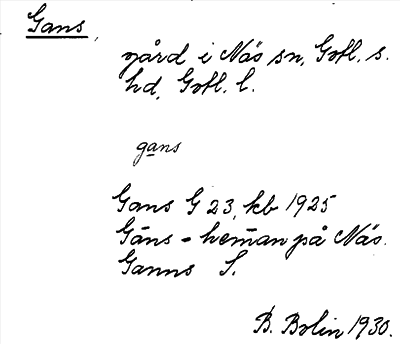 Gans,
gård i Näs sn, Gotl. s.
hd, Gotl. l.
gans
Gans G 23, kb 1925
Gäns - heman på Näs.
Ganns S.
B. Bolin 1930.